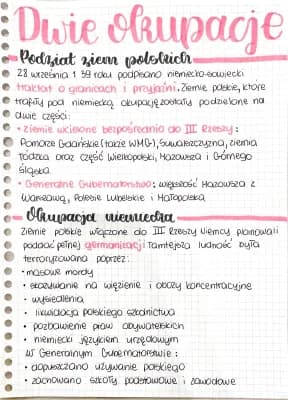 Dwie okupacje
Podział ziem polskich
28 września 1939 roku podpisano niemiecko-sowiecki
traktat o granicach i przyjaźni. Ziemie polskie, które
trafiły pod niemiecką okupację zostały podzielone na
dwie części:
• ziemie wcielone bezpośrednio do III Rzeszy:
Pomorze Gdańskie (także W.M.G), Suwalszczyzna, ziemia
łódzka oraz część Wielkopolski, Mazowsza i Górnego
Śląska
• Generalne Gubernatorstwo: większość Mazowsza z
Warszawą, Polesie Lubelskie i Małopolska
Okupacja niemiecka
Ziemie polskie włączone do III Rzeszy Niemcy planowali
poddać pełnej germanizacji. Tamtejsza ludność była
terroryzowana poprzez:
• masowe mordy
• skazywanie na więzienie i obozy koncentracyjne
• wysiedlenia
• likwidacja polskiego szkolnictwa
• pozbawienie praw obywatelskich
• niemiecki językiem urzędowym
W Generalnym Gubernatorstwie:
• dopuszczano używanie polskiego
• zachowano szkoły podstawowe i zawodowe